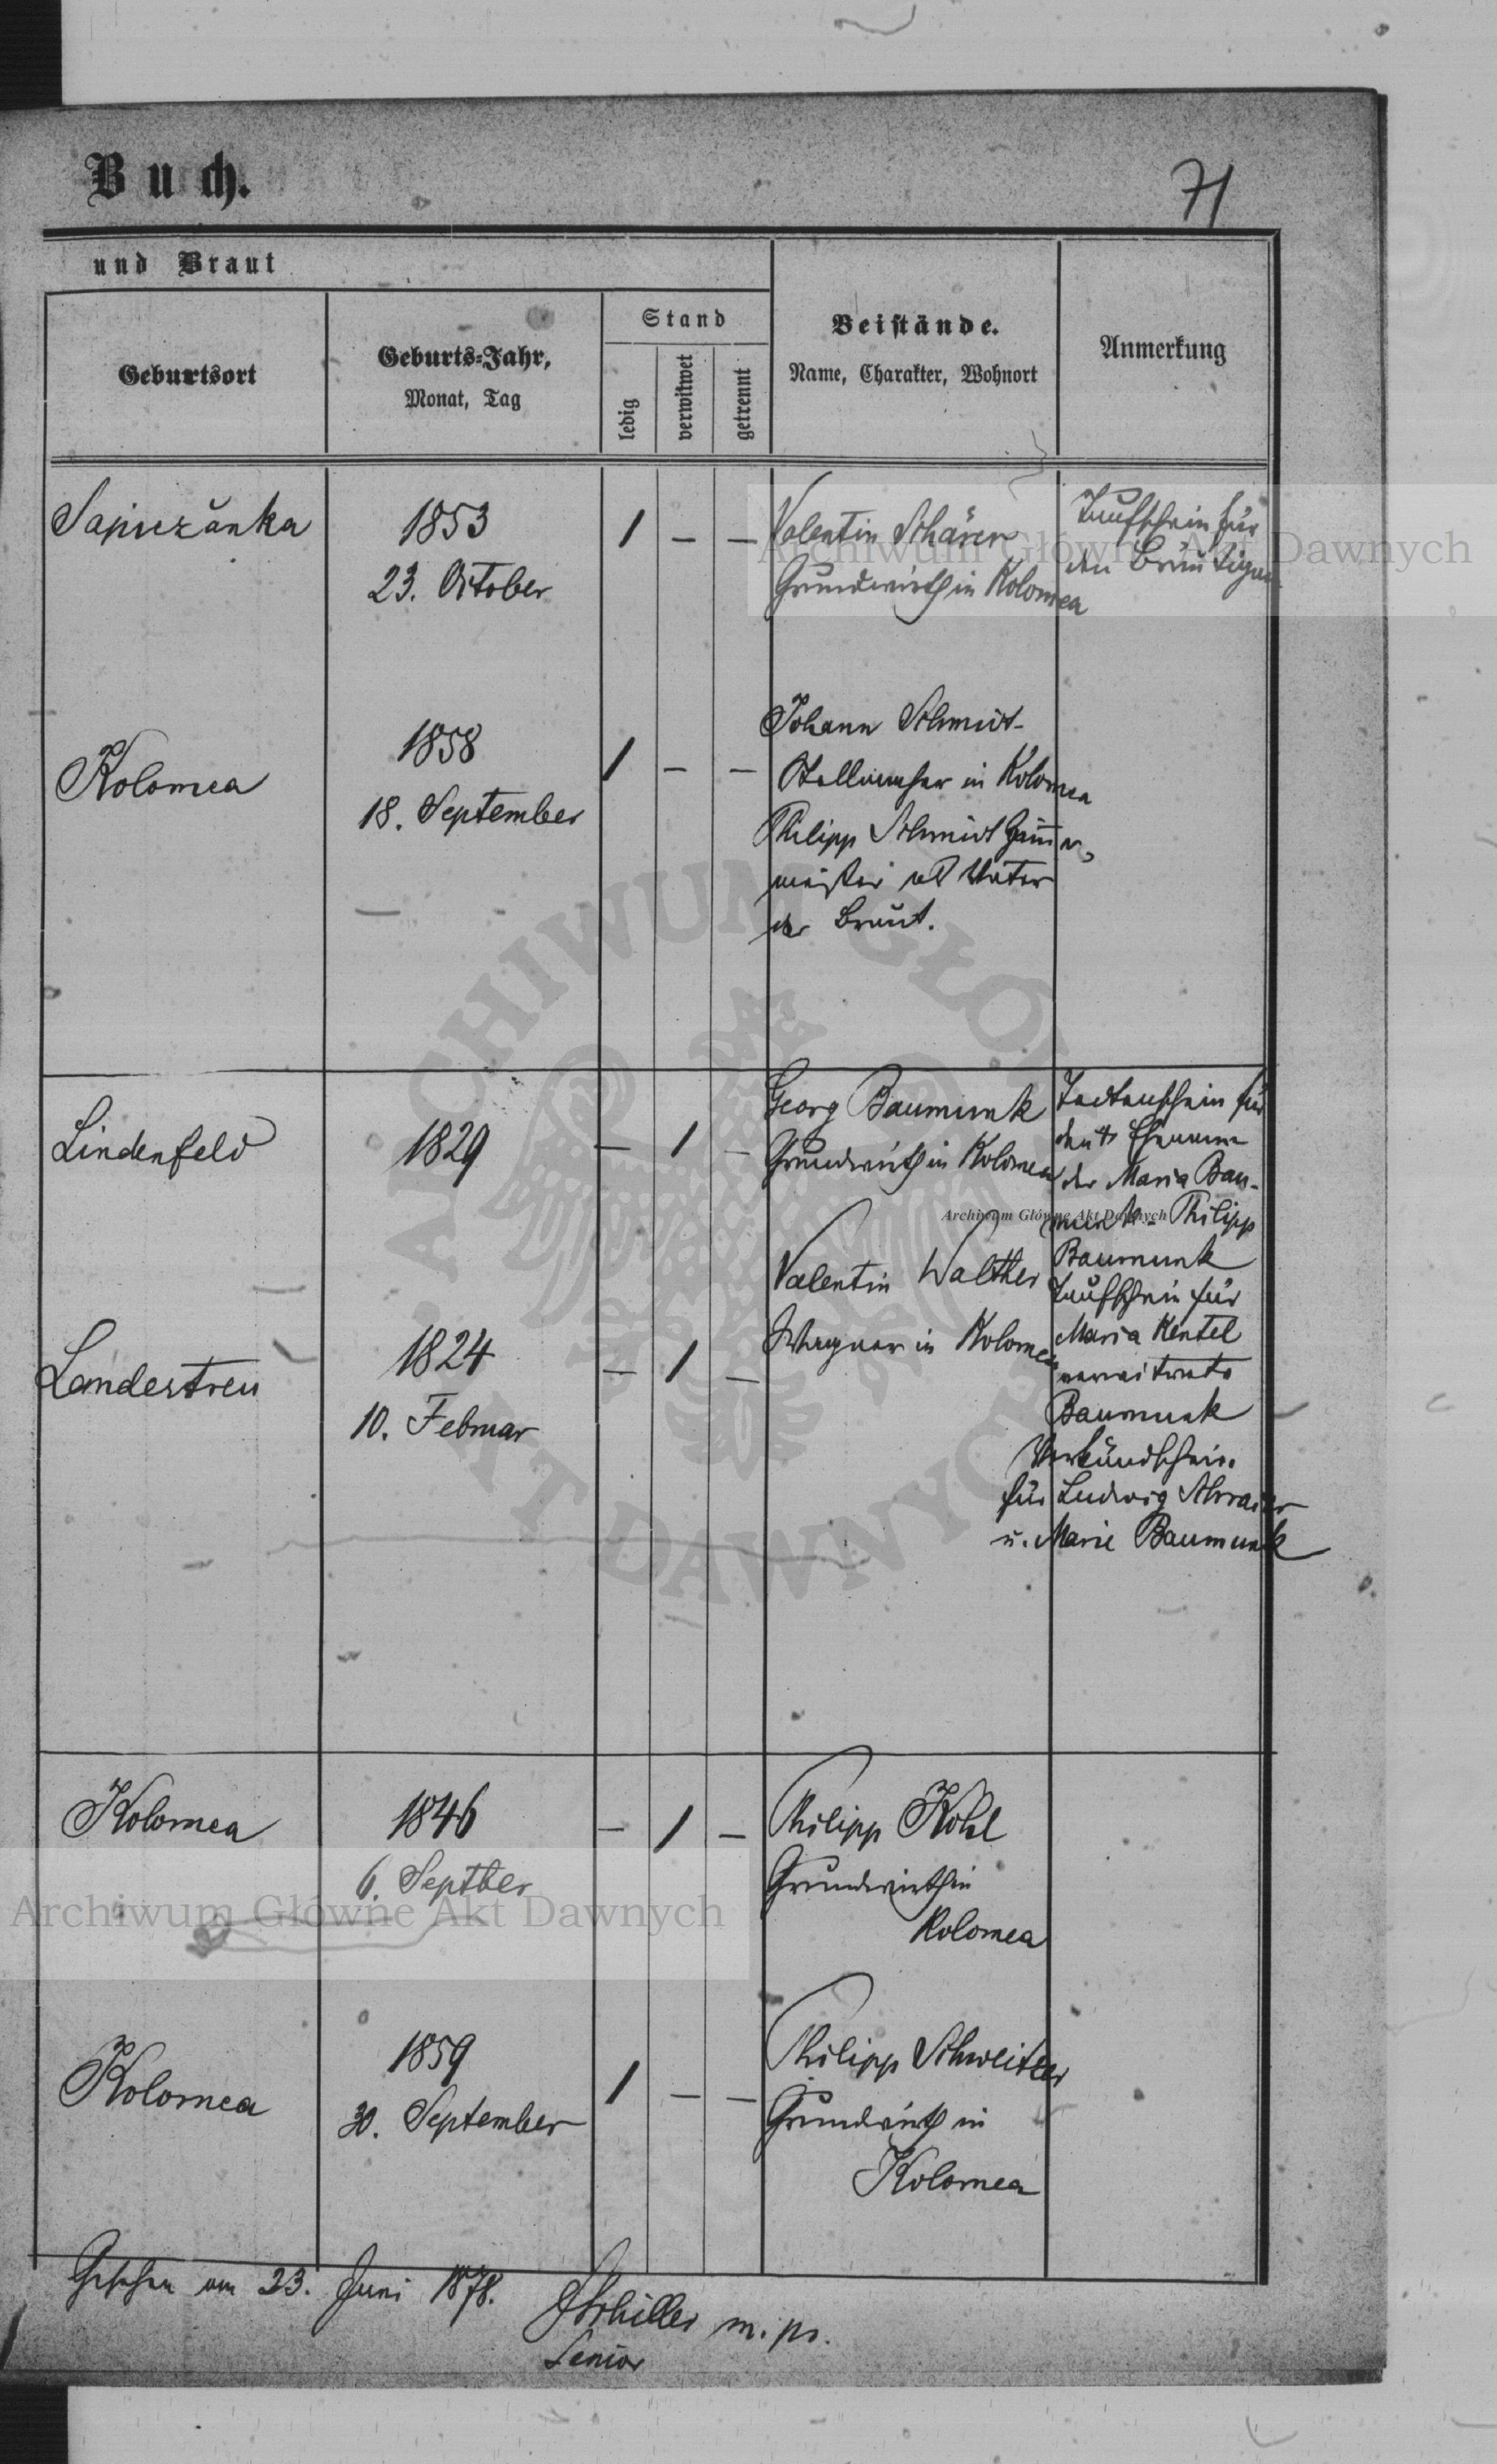 Buch.
71
und Braut
Geburtsort
Geburts-Jahr,
Monat, Tag
Stand
ledig
verwitwet
getrennt
Beistände.
Name, Charakter, Wohnort
Anmerkung
1853
23. October
1 — —
Valentin Schärer
Grundwirth in Kolomea
Taufschein für
den Bräutigam
Kolomea
1858
18. September
1 — —
Johann Schmidt
Stellmacher in Kolomea
Philipp Schmidt
meister als Vater
der Braut.
Lindenfeld
1829
— 1 —
Georg Baumunk
Grundwirth in Kolomea
Valentin Walther
Wagner in Kolomea
Todtenschein für
den † Ehemann
der Maria Bau-
munk - Philipp
Baumunk
Taufschein für
Maria Kentel
verwitwete
Baumunk
Verkündschein
für Ludwig
u. Marie Baumunk
Landestreu
1824
10. Februar
— 1 —
Kolomea
1846
6. Septber
— 1 —
Philipp Kohl
Grundwirth in
Kolomea
Kolomea
1859
30. September
1 — —
Philipp Schweitzer
Grundwirth in
Kolomea
Geschen am 23. Juni 1878.
Schiller m. pr.
Senior
Archiwum Główne Akt Dawnych
Archiwum Główne Akt Dawnych
Archiwum Główne Akt Dawnych
ARCHIWUM GŁÓWNE AKT DAWNYCH